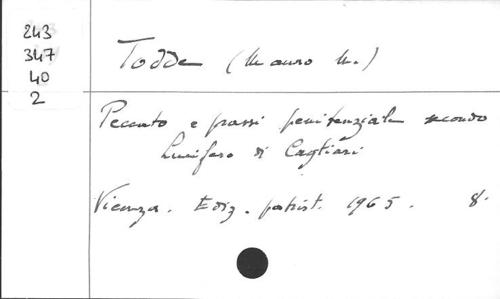 243
347
40
2
Todde (Mauro M.)
Peccato e prassi penitenziale secondo
Lucifero di Cagliari
Vicenza. Ediz. patrist. 1965. 8.